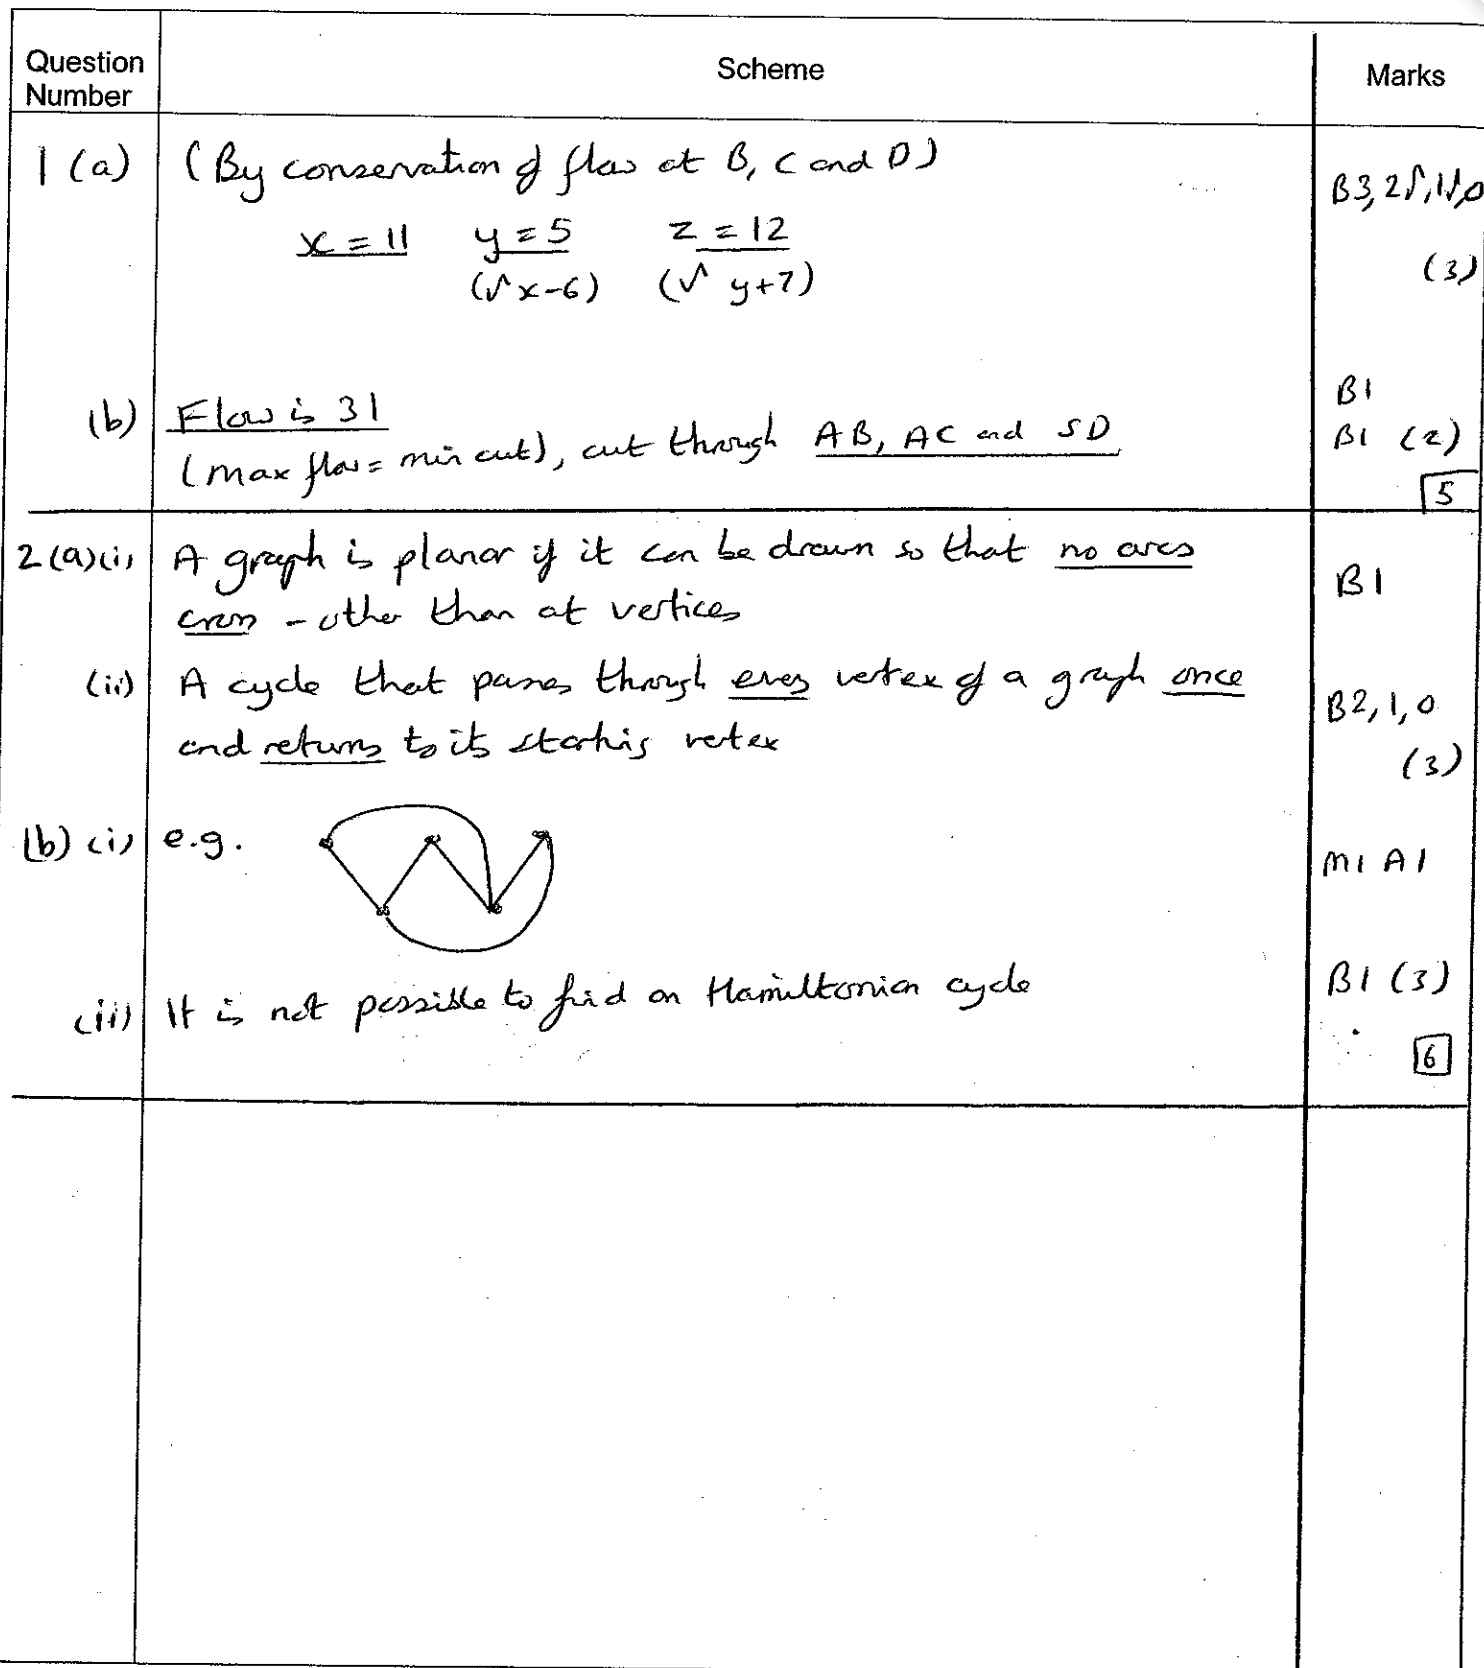 Question Number Scheme Marks
1 (a) (By conservation of flow at B, C and D) B3, 2√, 1√, 0
x = 11 y = 5 z = 12 (3)
(√ x-6) (√ y+7)
(b) Flow is 31 B1
(max flow = min cut), cut through AB, AC and SD B1 (2)
5
2 (a) (i) A graph is planar if it can be drawn so that no arcs B1
cross - other than at vertices
(ii) A cycle that passes through every vertex of a graph once B2, 1, 0
and returns to its starting vertex (3)
(b) (i) e.g. M1 A1
(ii) It is not possible to find an Hamiltonian cycle B1 (3)
6